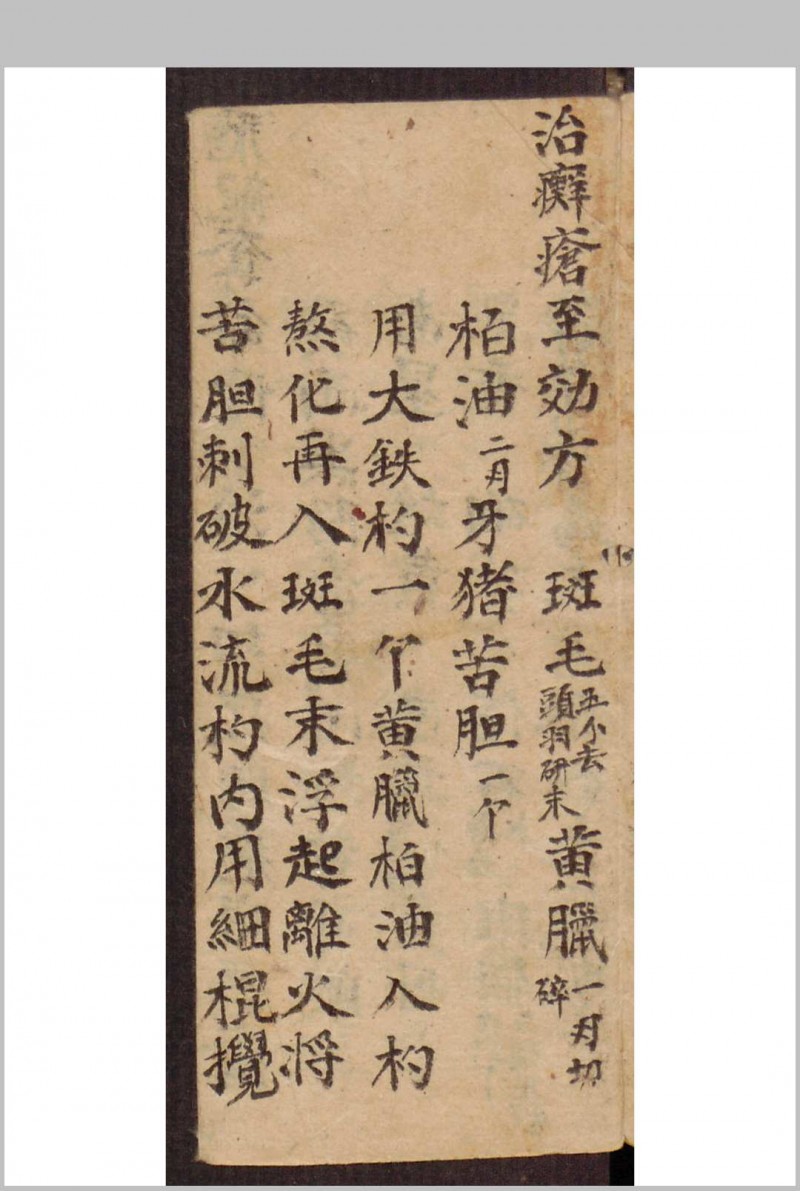 治癬瘡至効方 斑毛五个去頭羽研末黄臘一刄切碎
柏油二刄牙猪苦胆一个
用大鉄杓一个黄臘柏油入杓
熬化再入斑毛末浮起離火将
苦胆刺破水流杓内用細棍攪